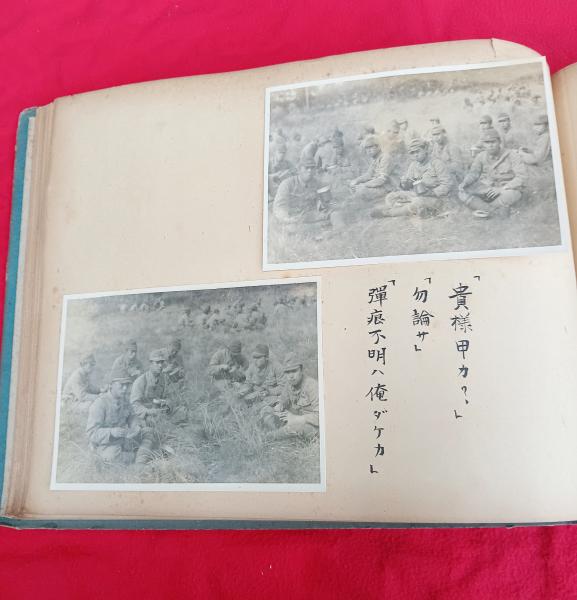 「貴様甲カ？」
「勿論サ」
「彈痕不明ハ俺ダケカ」